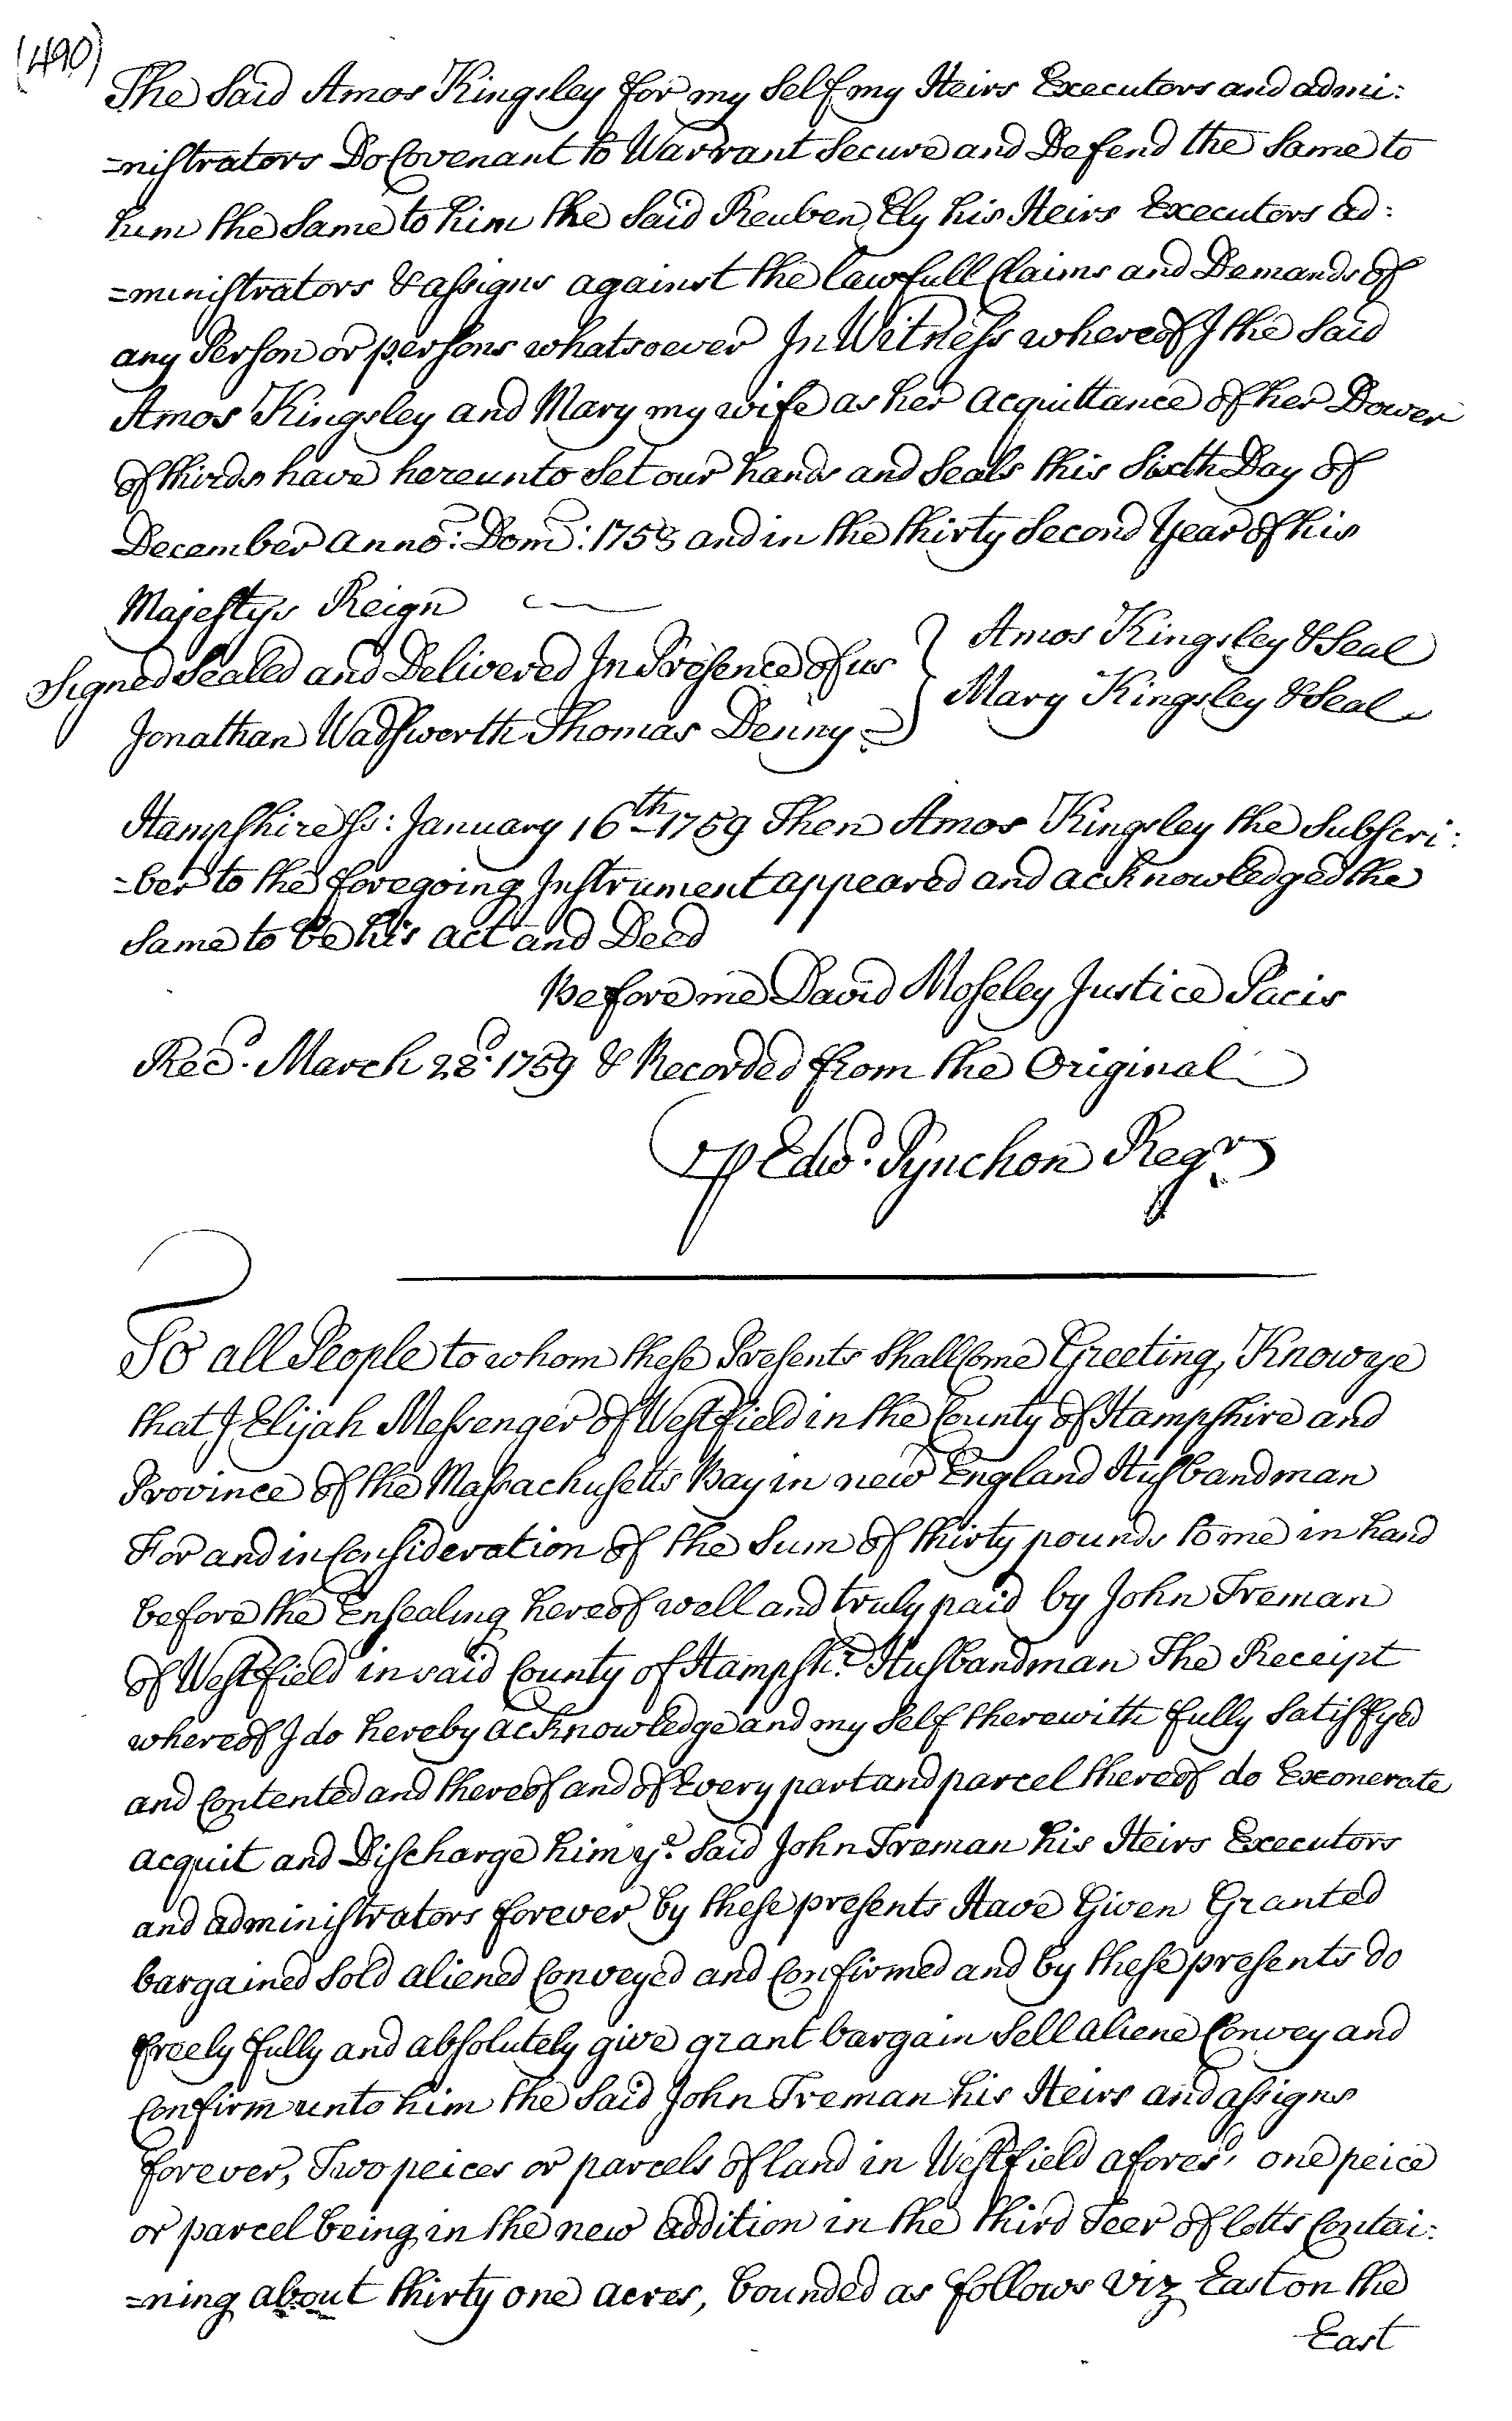 (490)
The Said Amos Kingsley for my Self my Heirs Executors and admi:
=nistrators Do Covenant to Warrant Secure and Defend the Same to
him the Same to him the Said Reuben Ely his Heirs Executors ad:
=ministrators & assigns against the lawfull Claims and Demands of
any Person or persons whatsoever In Witness whereof I the Said
Amos Kingsley and Mary my wife as her acquittance of her Dower
of thirds have hereunto Set our hands and Seals this Sixth Day of
December anno: Dom: 1758 and in the thirty Second Year of his
Majestys Reign
Signed Sealed and Delivered In Presence of us } Amos Kingsley & Seal
Jonathan Wadsworth Thomas Denny } Mary Kingsley & Seal
Hampshire Ss: January 16th 1759 Then Amos Kingsley the Subscri:
=ber to the foregoing Instrument appeared and acknowledged the
Same to be his act and Deed
Before me David Moseley Justice Pacis
Recd. March 28d. 1759 & Recorded from the Original
⅌ Edwd. Pynchon Regr
To all People to whom these Presents Shall Come Greeting, Know ye
that I Elijah Messenger of Westfield in the County of Hampshire and
Province of the Massachusetts Bay in new England Husbandman
For and in Consideration of the Sum of thirty pounds to me in hand
before the Ensealing hereof well and truly paid by John Treman
of Westfield in said County of Hampshr. Husbandman The Receipt
whereof I do hereby acknowledge and my Self therewith fully Satisfyed
and Contented and thereof and of Every part and parcel thereof do Exonerate
acquit and Discharge him ye. Said John Treman his Heirs Executors
and administrators forever by these presents Have Given Granted
bargained Sold aliened Conveyed and Confirmed and by these presents do
freely fully and absolutely give grant bargain Sell aliene Convey and
Confirm unto him the Said John Treman his Heirs and assigns
forever, Two peices or parcels of land in Westfield aforesd, one peice
or parcel being in the new addition in the third Teer of lotts Contai:
=ning about thirty one acres, bounded as follows viz East on the
East